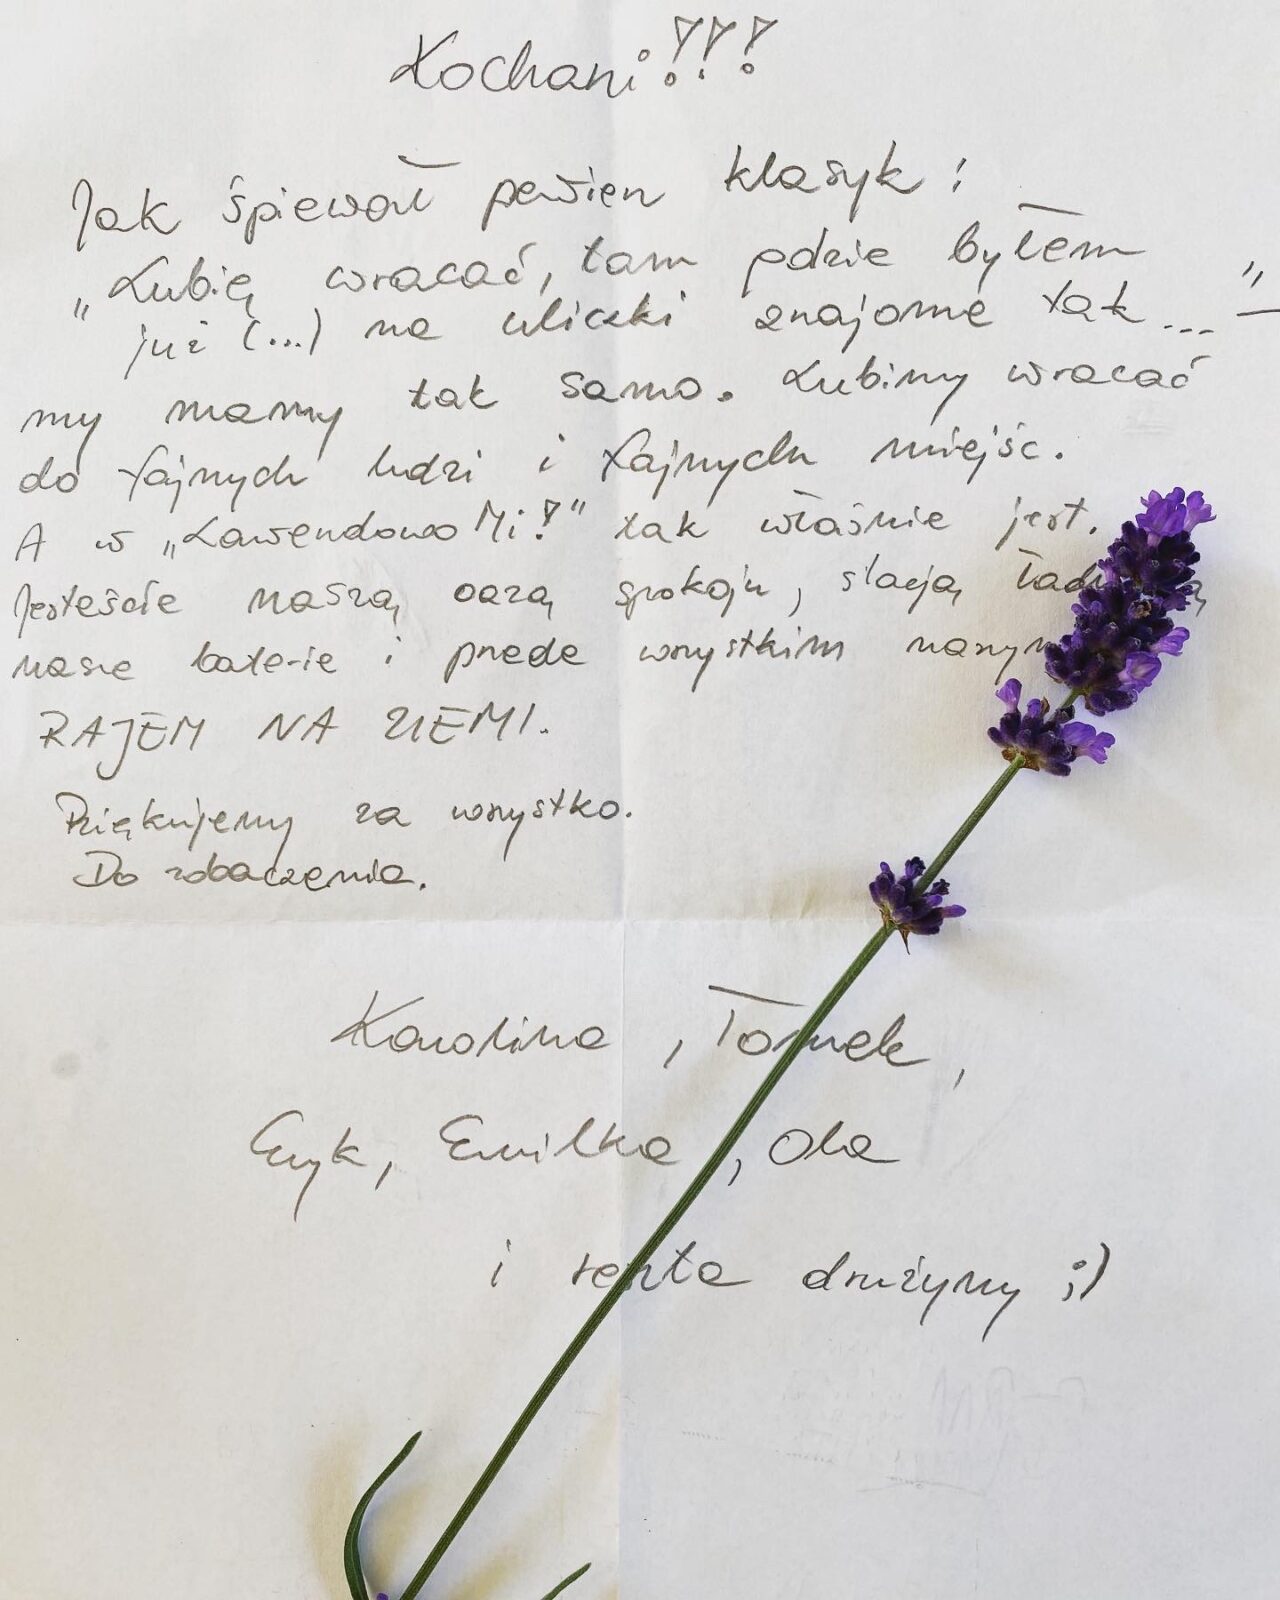 Kochani!!!
Jak śpiewał pewien klasyk:
„Lubię wracać, tam gdzie byłem
już (...) na uliczki znajome tak..." –
my mamy tak samo. Lubimy wracać
do fajnych ludzi i fajnych miejsc.
A w „Lawendowo Mi!" tak właśnie jest.
Jesteście naszą oazą spokoju, stacją
nasze baterie i przede wszystkim
RAJEM NA ZIEMI.
Dziękujemy za wszystko.
Do zobaczenia.
Karolina, Tomek,
Eryk, Emilka, Ola
i reszta drużyny ;)